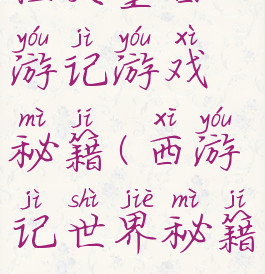 yóu jì yóu xì
游记游戏
mì jí xī yóu
秘籍(西游
jì shì jiè mì jí
记世界秘籍